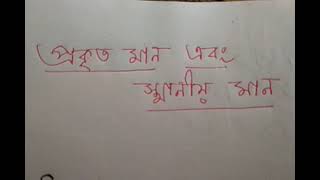 প্রকৃত মান এবং
স্থানীয় মান